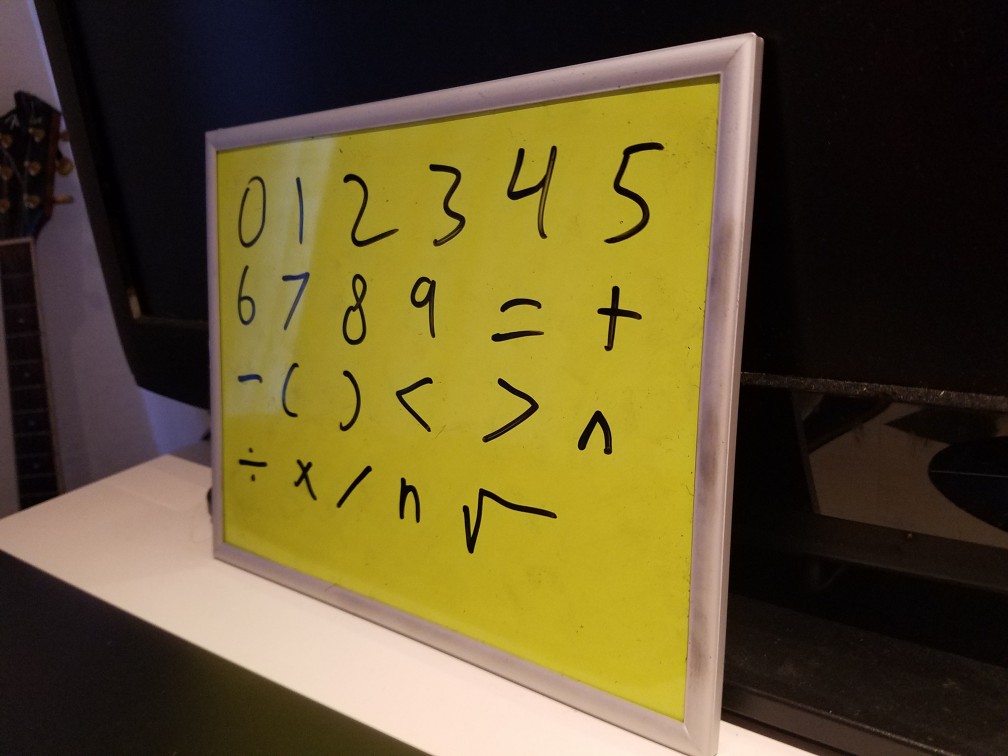 0 1 2 3 4 5
6 7 8 9 = +
- ( ) < > ^
÷ x / n √